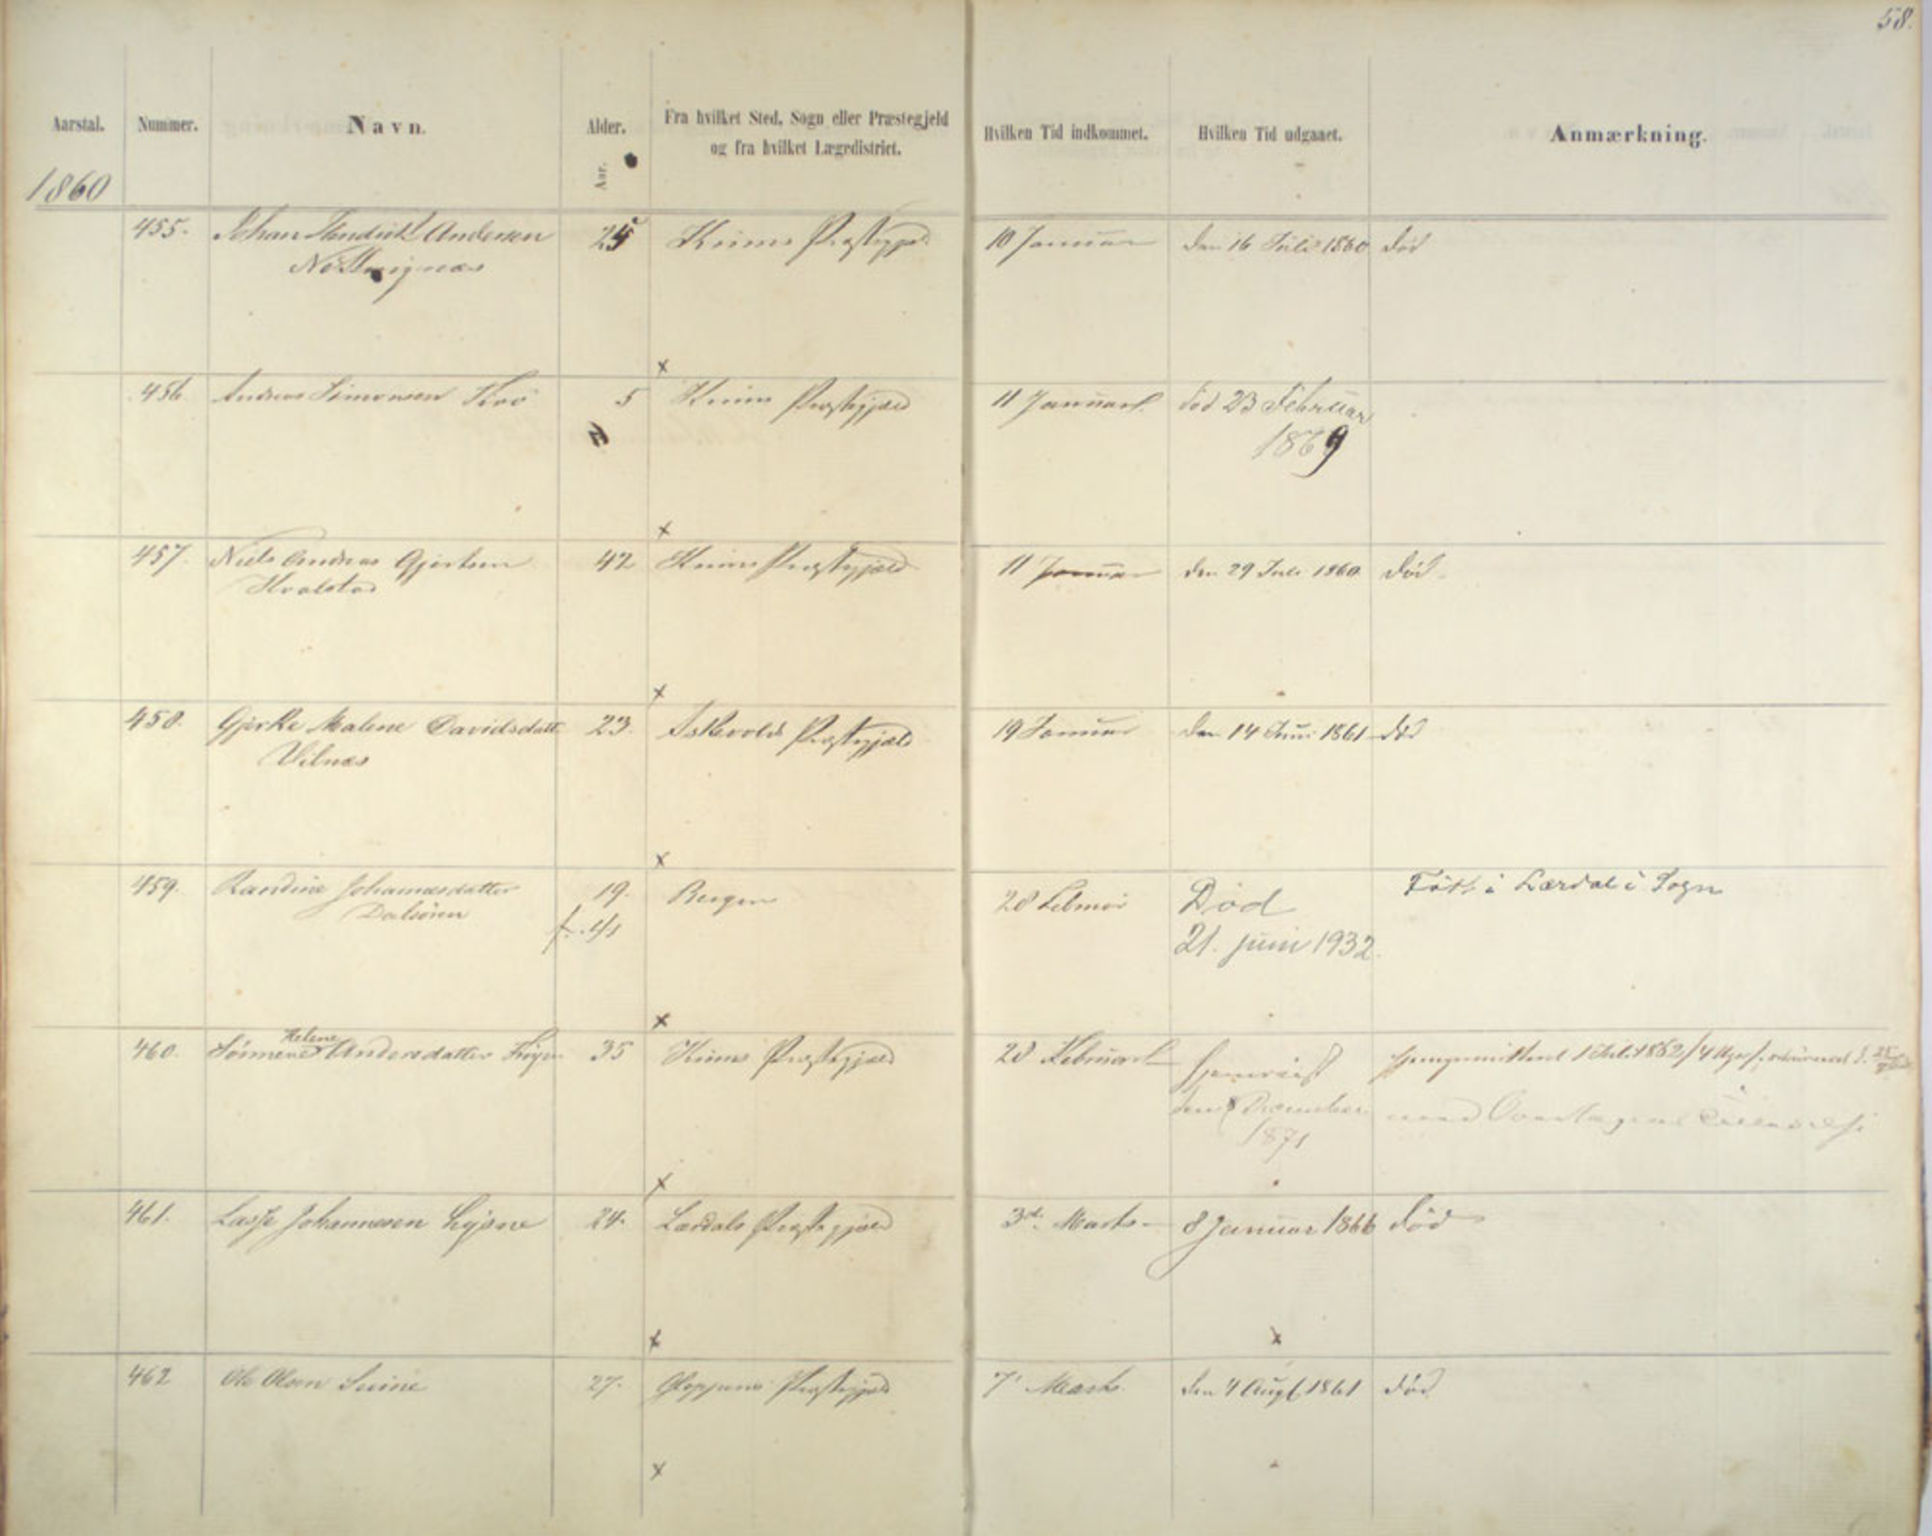 58.
Aarstal. Nummer. Navn. Alder. Fra hvilket Sted, Sogn eller Præstegjeld
og fra hvilket Lægedistrict. Hvilken Tid indkommet. Hvilken Tid udgaaet. Anmærkning.
Aar.
1860
455. Johan Hendrik Andersen 25 Kinns Præstegjeld 10 Januar den 16 Juli 1860 død
456 Andreas Simonsen 5 Kinns Præstegjæld 11 Januar død 23 Februar
1869
457. Niels Andreas Gjertsen 42 Kinns Præstegjæld 11 Januar den 29 Juli 1860 død
Hvalstad
458. Gjerke Malene Davidsdatt 23. Askevolds Præstegjæld 19 Januar den 14 Juni 1861 død
Vilnæs
459. Randine Johannesdatter 19. Bergen 28 Februar Død Født i Lærdal i Sogn
Dalsøren
21. juni 1932.
Helene
460. Andersdatter 35 Kinns Præstegjæld 28 Februar Hjemreist
den December med
1871
461. Lasse Johannesen Lysne 24. Lærdals Præstegjæld 3die Marts 8 Januar 1866 død
462 Ole Olsen 27. Gloppens Præstegjæld 7 Marts. den 4 Augt 1861 død